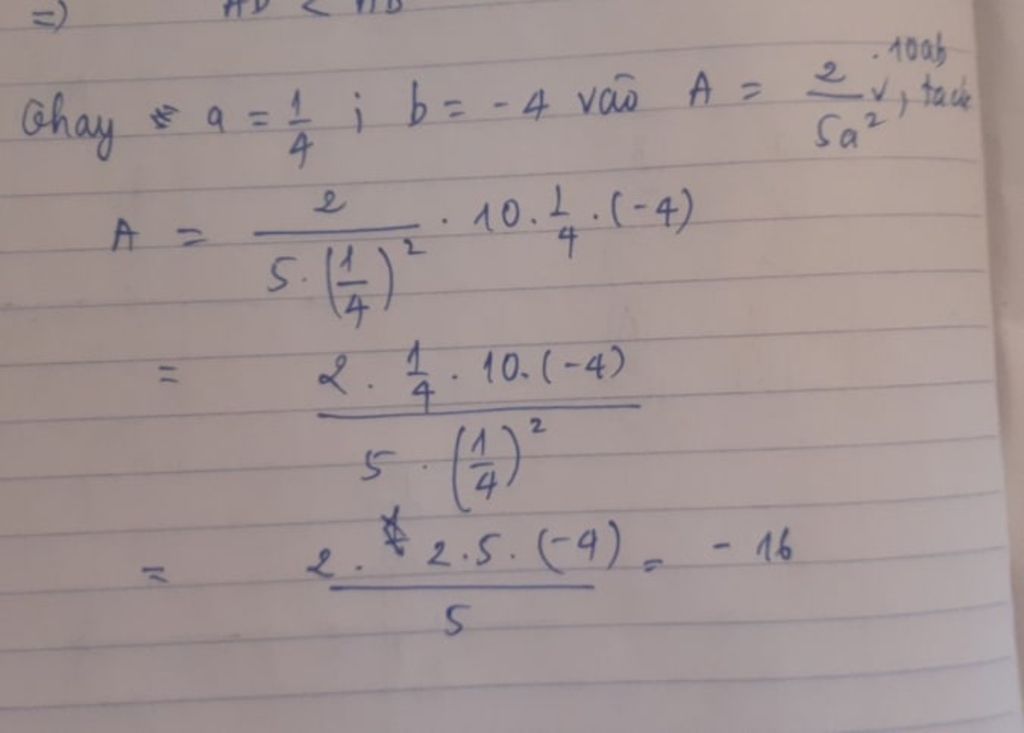 => AD < AB
Thay a = 1/4 ; b = -4 vào A = 2/5a² . 10ab, ta có
A = 2/(5.(1/4)²) . 10. 1/4 . (-4)
= (2 . 1/4 . 10. (-4))/(5 . (1/4)²)
= (2 . 2 . 5 . (-4))/5 = - 16